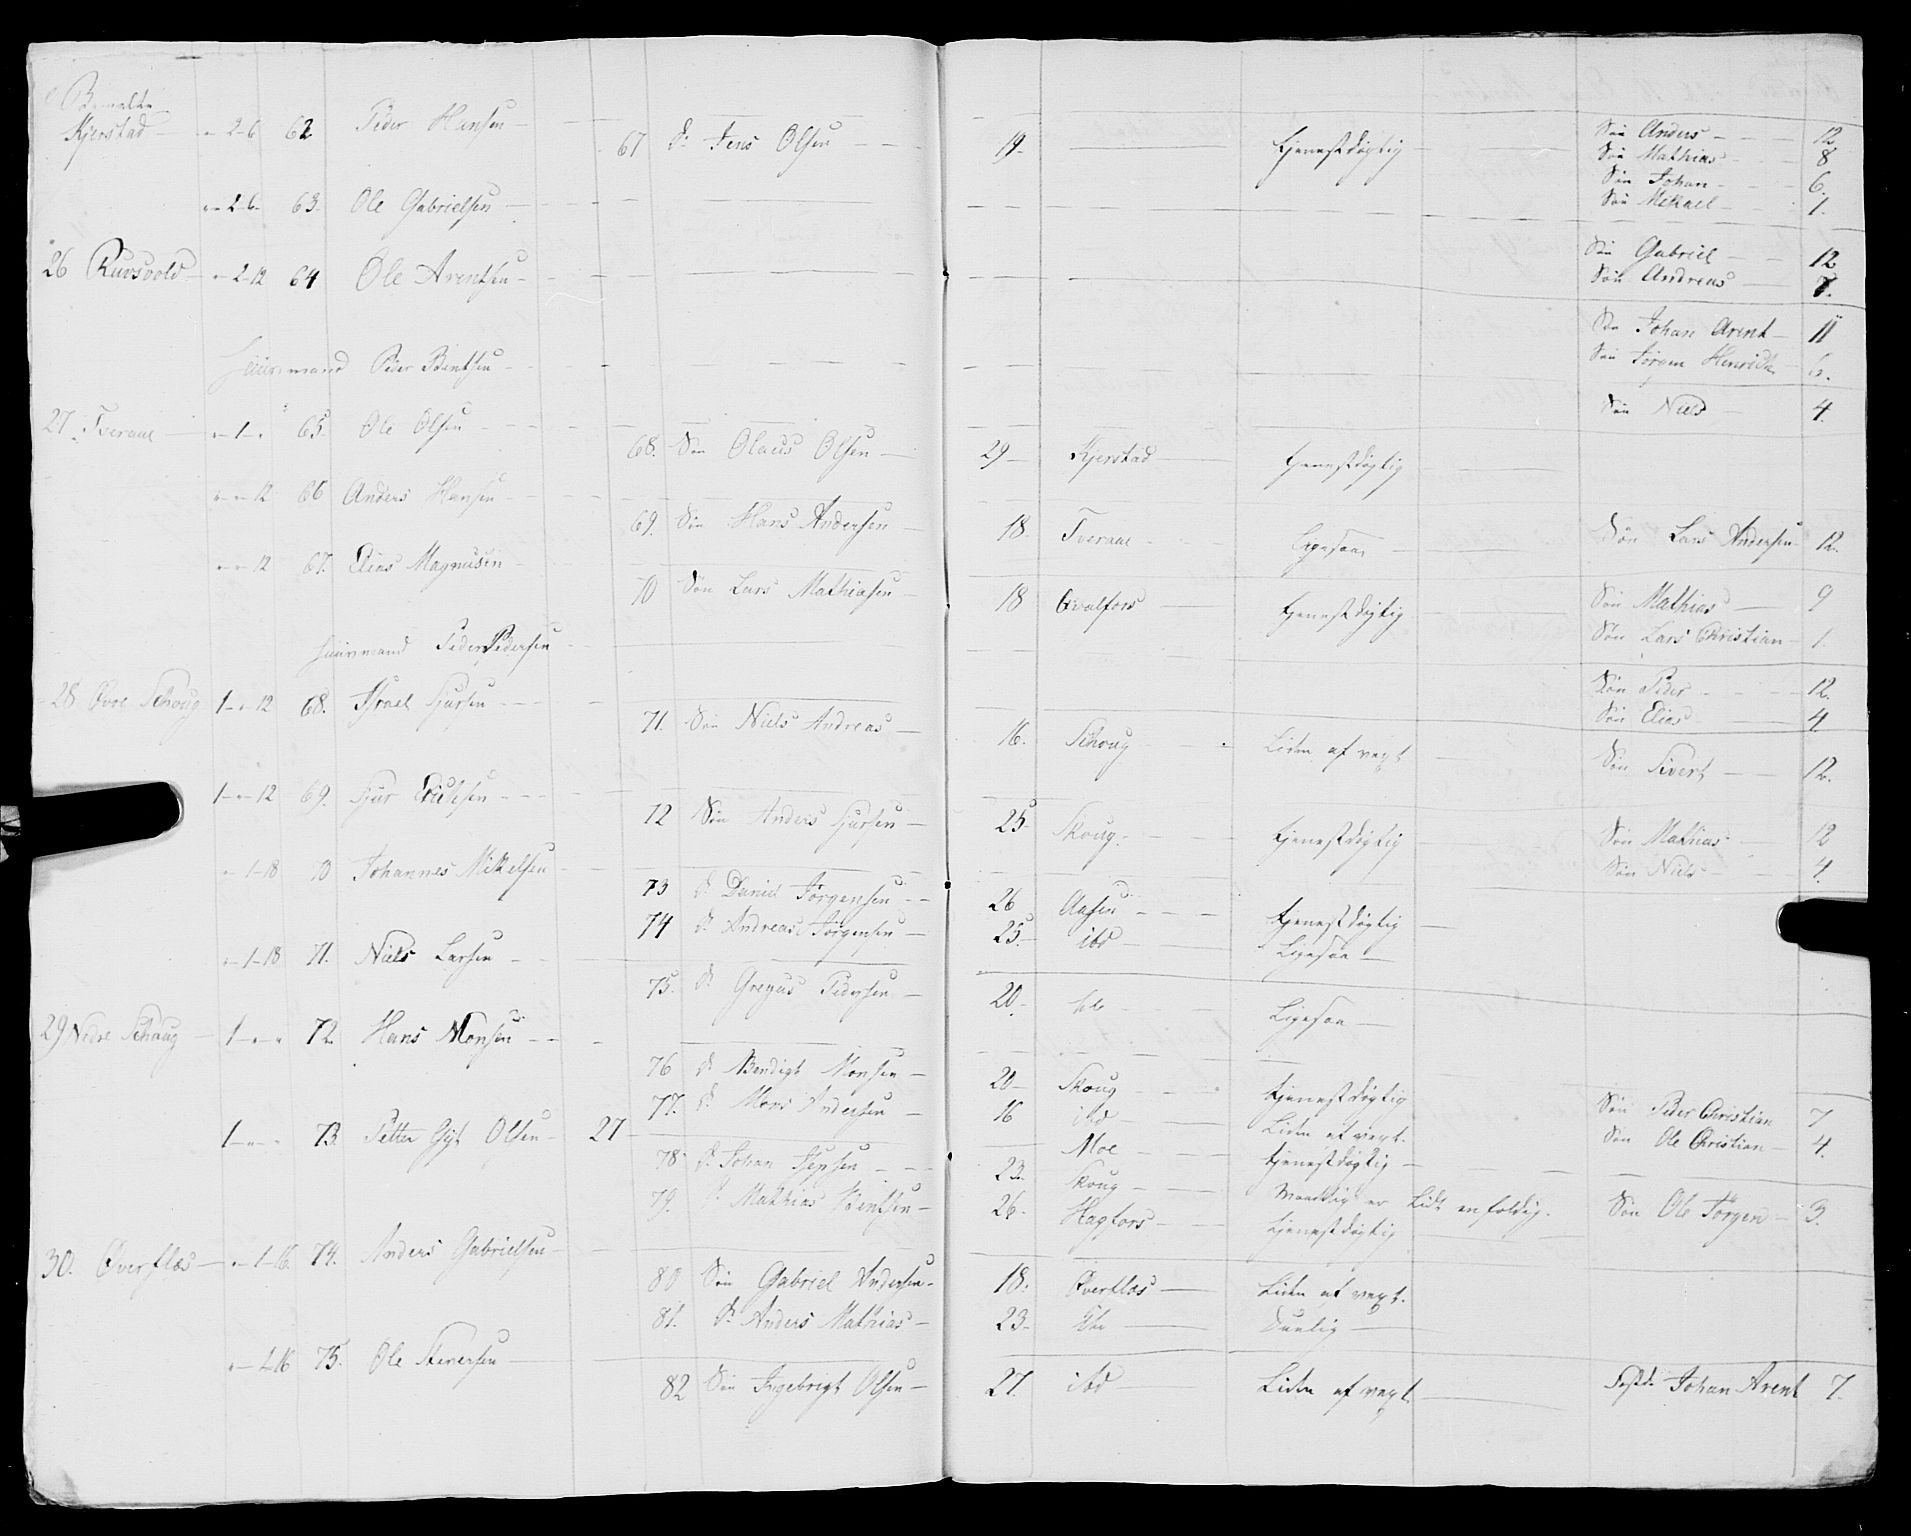 Bemalte
Kjerstad — " 2-6 62 Peder Hansen —
67 d: Jens Olsen — — 19 — tjenestdygtig — Søn Anders — 12
Søn Mathias — 8
Søn Johan — 6.
Søn Mikael — 1.
" 2-6 63. Ole Gabrielsen —
Søn Gabriel — 12
Søn Andreas — 7.
26 Ruusvold — " 2-12 64 Ole Arentsen —
Søn Johan Arent — 11
Søn Jørgen Henrich 6.
Huusmand Peder Bentsen —
Søn Niels — 4.
27 Tveraae — " 1 " 65. Ole Olsen —
68. Søn Olaus Olsen — 29 — Kjerstad — tjenestdygtig
" " 12 66 Anders Hansen —
69. Søn Hans Andersen — 18. Tveraae — Ligesaa — Søn Lars Andersen 12.
" " 12 67. Elias Magnusen —
70 Søn Lars Mathiasen — 18 Qvalfors — tjenestdygtig Søn Mathias — 9
Søn Lars Christian — 1.
Huusmand Peder Pedersen —
Søn Peder — 12.
Søn Elias — 4
28 Øvre Schoug 1 " 12 68. Israel Sjursen —
71. Søn Niels Andreas — 16. Schoug — Liden af vext — Søn Sivert — 12.
1 " 12 69. Sjur Erichsen —
72 Søn Anders Sjursen — 25 — Skoug — tjenestdygtig Søn Mathias — 12
Søn Niels — 4.
" 1-18 70 Johannes Mikelsen —
73 d: Daniel Jørgensen — 26 Aasen — tjenestdygtig —
74 d: Andreas Jørgensen — 25. ibd — Ligesaa —
" 1-18 71. Niels Larsen —
75. d: Gregus Pedersen — 20. — Ligesaa —
29 Nedre Schoug — 1 " " 72. Hans Monsen —
76 d: Bendigt Monsen — 20 — Skoug — tjenestdygtig
77. d: Mons Andersen — 16 ibd — Liden af vext. Søn Peder Christian 7
Søn Ole Christian — 4.
1 " " 73. Petter Gyt Olsen — 27 —
78 d: Johan Jepsen — Moe — tjenestdygtig —
23. Skoug —
79. d: Mathias Bentsen — 26. Hagfors — er Lidt enfoldig. Søn Ole Jørgen — 3.
tjenestdygtig —
30. Øverflæs — " 1-16. 74. Anders Gabrielsen —
80 Søn Gabriel Andersen — 18. Øverflæs — Liden af vext.
81. d: Anders Mathias — 23 — Ibd — Duelig —
" 1-16 75. Ole Steversen —
82 Søn Ingebrigt Olsen — 27. ibd — Liden af vext — Johan Arent 7.